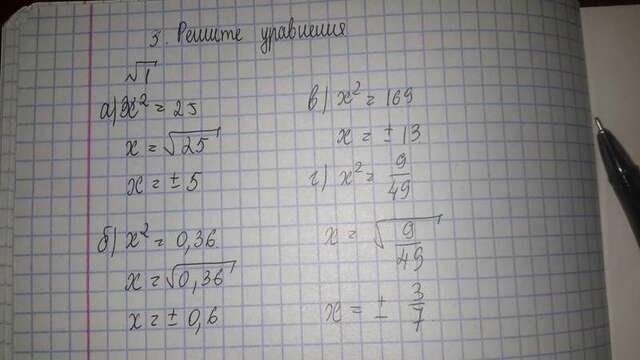 3. Решите уравнения
√1
а) x² = 25
x = √25
x = ± 5
б) x² = 0,36
x = √0,36
x = ± 0,6
в) x² = 169
x = ± 13
г) x² = 9/49
x = √9/49
x = ± 3/7